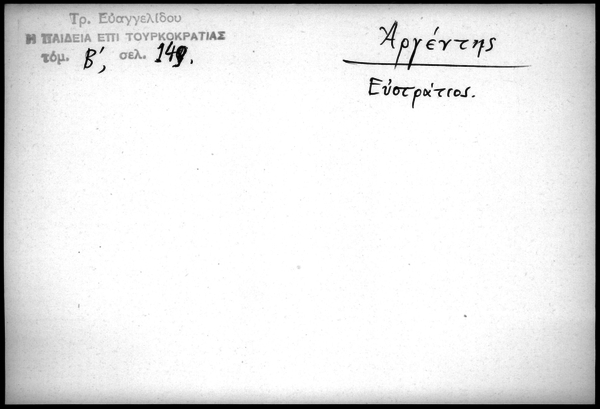 Τρ. Εὐαγγελίδου
Η ΠΑΙΔΕΙΑ ΕΠΙ ΤΟΥΡΚΟΚΡΑΤΙΑΣ
τόμ. Β΄, σελ. 149.
Ἀργέντης
Εὐστράτιος.